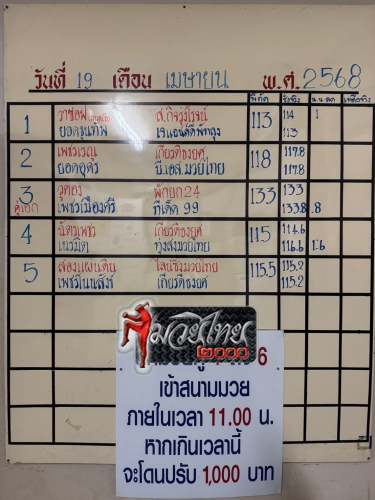 วันที่ 19 เดือน เมษายน พ.ศ. 2568
พิกัด ชั่งจริง น.น.ลด เหลือจริง
1 วาซอฟ ส.กิจรุ่งโรจน์ 113 114 1
ยอดขุนทัพ เจแอนด์ดีพัทลุง 113
2 เพชรเวฬุ เกียรติยงยศ 118 117.8
ยอดอุดร บี.เอส.มวยไทย 117.8
3 วุฒอง พักยก24 133 133
คู่เอก เพชรเมืองศรี ทีเด็ด 99 133.8 .8
4 ฉัตรเพชร เกียรติยงยศ 115 114.6
เนรมิต ทุ่งสงมวยไทย 116.6 1.6
5 สองแผ่นดิน ไลน์ซิ่งมวยไทย 115.5 115.2
เพชรนิมสังข์ เกียรติยงยศ 115.2
มวยไทย
๒๐๐๐
6
เข้าสนามมวย
ภายในเวลา 11.00 น.
หากเกินเวลานี้
จะโดนปรับ 1,000 บาท